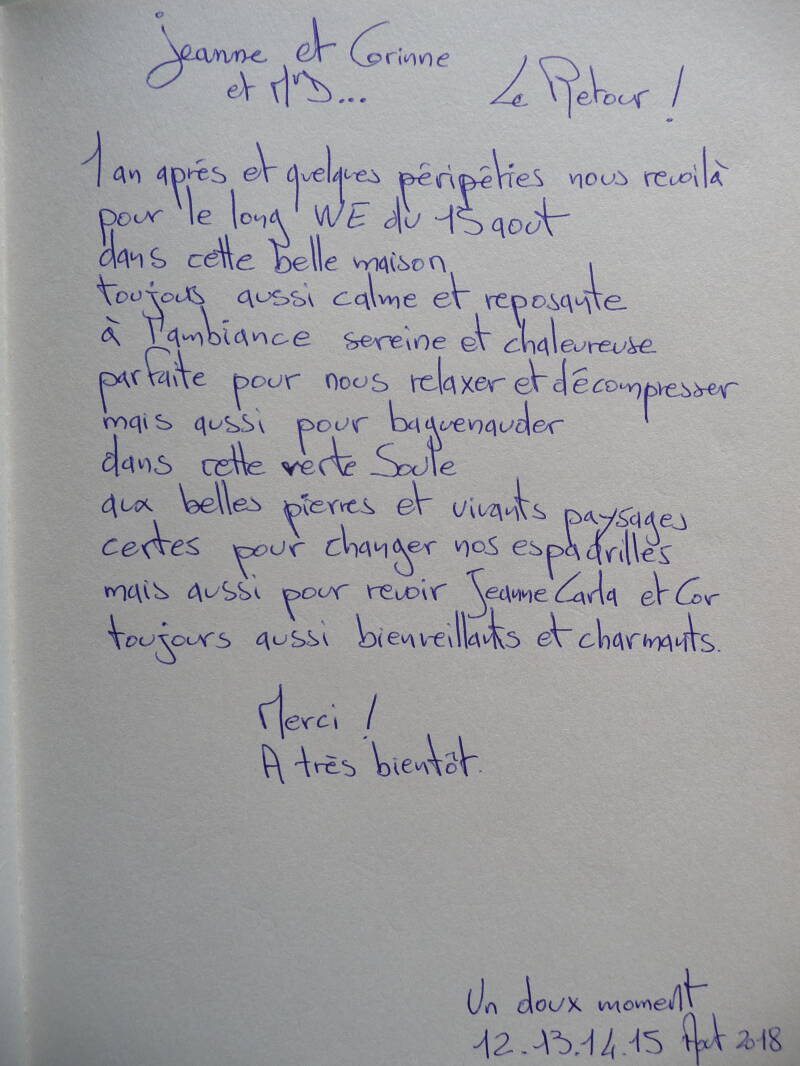 Jeanne et Corinne
et Mr D... Le Retour !
1 an après et quelques péripéties nous revoilà
pour le long WE du 15 aout
dans cette belle maison,
toujous aussi calme et reposante
à l'ambiance sereine et chaleureuse
parfaite pour nous relaxer et décompresser
mais aussi pour baguenauder
dans cette verte Soule
aux belles pierres et vivants paysages
certes pour changer nos espadrilles
mais aussi pour revoir Jeanne Carla et Cor
toujours aussi bienveillants et charmants.
Merci !
A très bientôt.
Un doux moment
12.13.14.15 Aout 2018